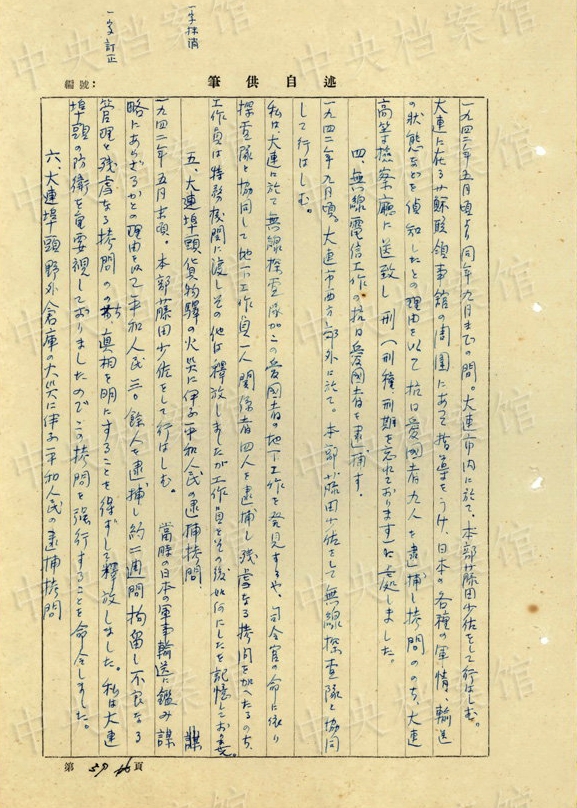 一字抹消
一字訂正
編號:
述自供筆
一九四二年五月頃より同年九月までの間。大連市内に於て。本部藤田少佐をして行はしむ。
大連に在るソ蘇聯領事舘の周圍にあつて指導をうけ、日本の各種の軍情、輸送
の状態などを偵知したとの理由を以て抗日愛國者九人を逮捕し拷問ののち、大連
高等檢察廳に送致し刑(刑種、刑期を忘れております)に處しました。
四、無線電信工作の抗日愛國者を逮捕す。
一九四二年九月頃。大連市西方郊外に於て。本部藤田少佐をして無線探査隊と協同
して行はしむ。
私は、大連に於て無線探査隊がこの愛國者の地下工作を発見するや、司令官の命に依り
探査隊と協同して地下工作員一人関係者四人を逮捕し残虐なる拷問を加へたるのち、
工作員は特務機関に渡しその他は釈放しましたが工作員をその後如何にしたか記憶しておりません。
五、大連埠頭貨物驛の火災に伴ふ平和人民の逮捕拷問
一九四二年五月末頃。本部藤田少佐をして行はしむ。當時の日本の軍事輸送に鑑み謀
略にあらざるかとの理由を以て平和人民三〇餘人を逮捕し約一週間拘留し不良なる
管理と残虐なる拷問のすえ、真相を明にすることを得ずして釋放しました。私は大連
埠頭の防衛を重要視しておりましたのでこの拷問を強行することを命令しました。
六、大連埠頭野外倉庫の火災に伴ふ平和人民の逮捕拷問
第 頁
中央档案馆